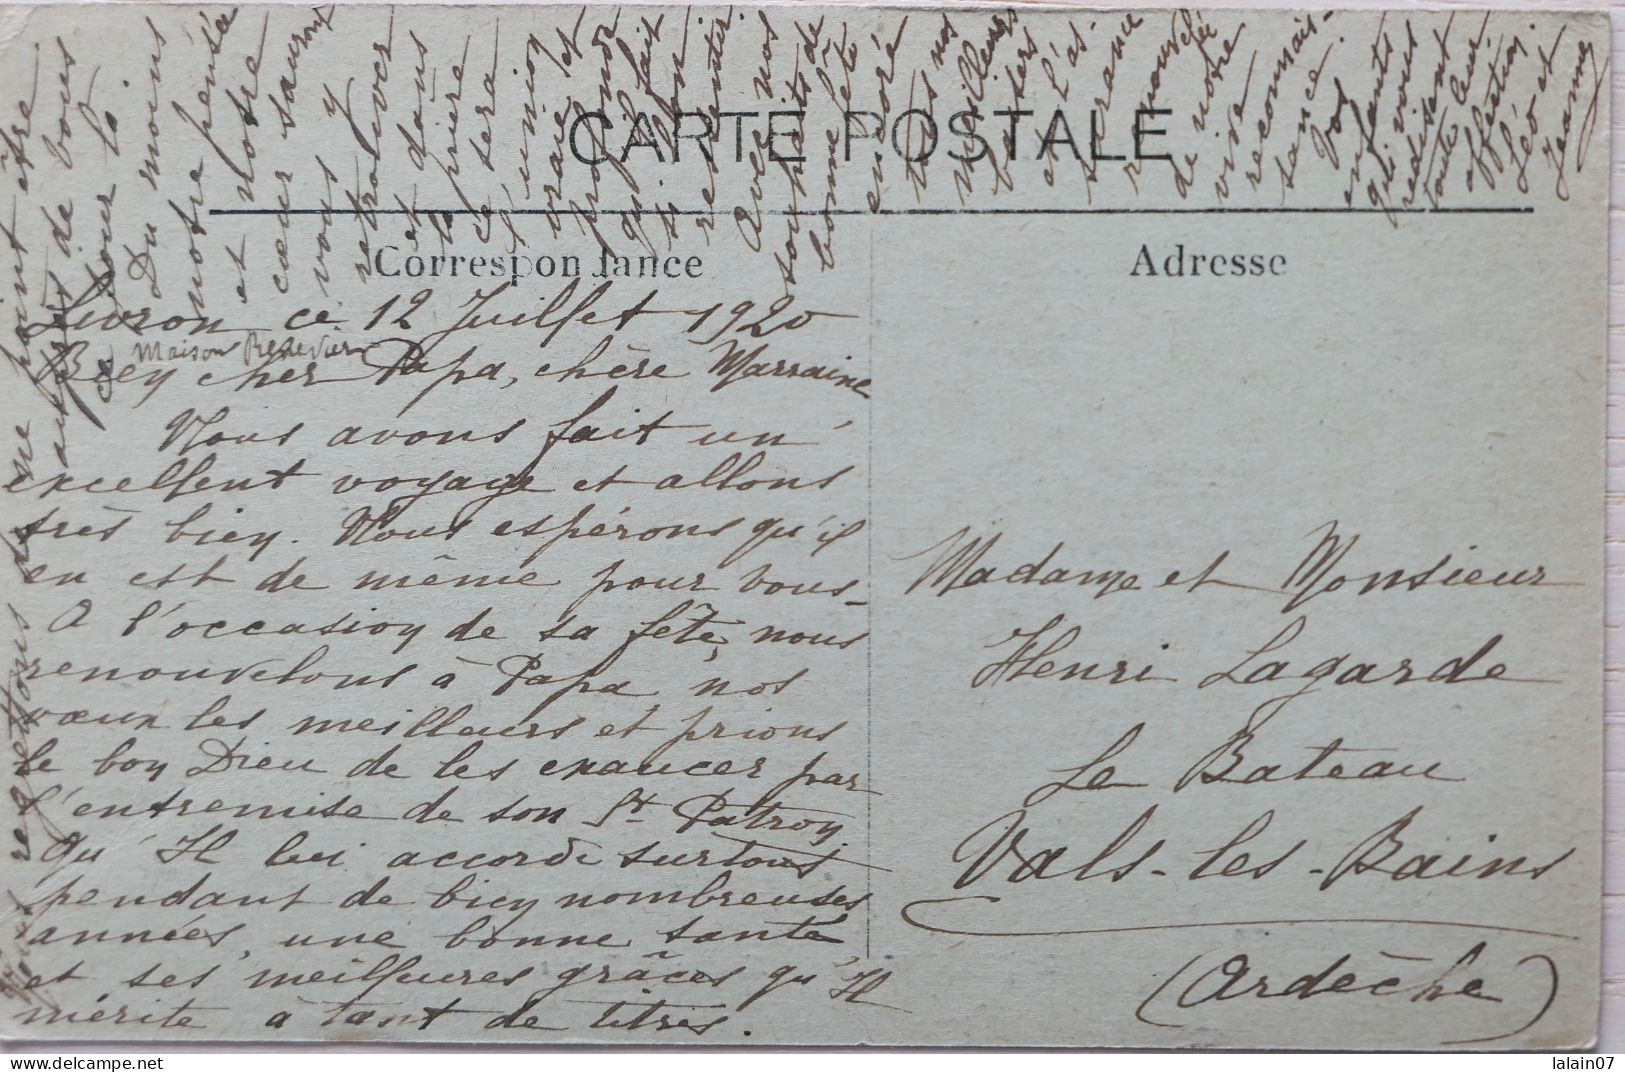 CARTE POSTALE
Correspondance
Adresse
Livron, ce 12 Juillet 1920
Maison Reherier
Bien cher Papa, chère Marraine
Nous avons fait un
excellent voyage et allons
très bien. Nous espérons qu'il
en est de même pour vous –
A l'occasion de sa fête, nous
renouvelons à Papa nos
vœux les meilleurs et prions
le bon Dieu de les exaucer par
l'entremise de son St Patron
Qu'Il lui accorde surtout
pendant de bien nombreuses
années, une bonne santé
et ses meilleures grâces qu'Il
mérite à tant de titres.
Nous regrettons de ne point être
auprès de vous
ce jour là.
Du moins
notre pensée
et notre
cœur sauront
vous y
retrouver
et dans
la prière
ce sera
l'union
vraie et
profonde
qui fait
si bon
ressentir.
Avec nos
souhaits de
bonne fête
encore
nos
meilleurs
baisers
et l'as-
surance
renouvelée
de notre
vive
reconnais-
sance.
Vos
enfants
qui vous
redisent
toute leur
affection.
Léo et
Jeanne
Madame et Monsieur
Henri Lagarde
Le Bateau
Vals-les-Bains
(Ardèche)
lalain07